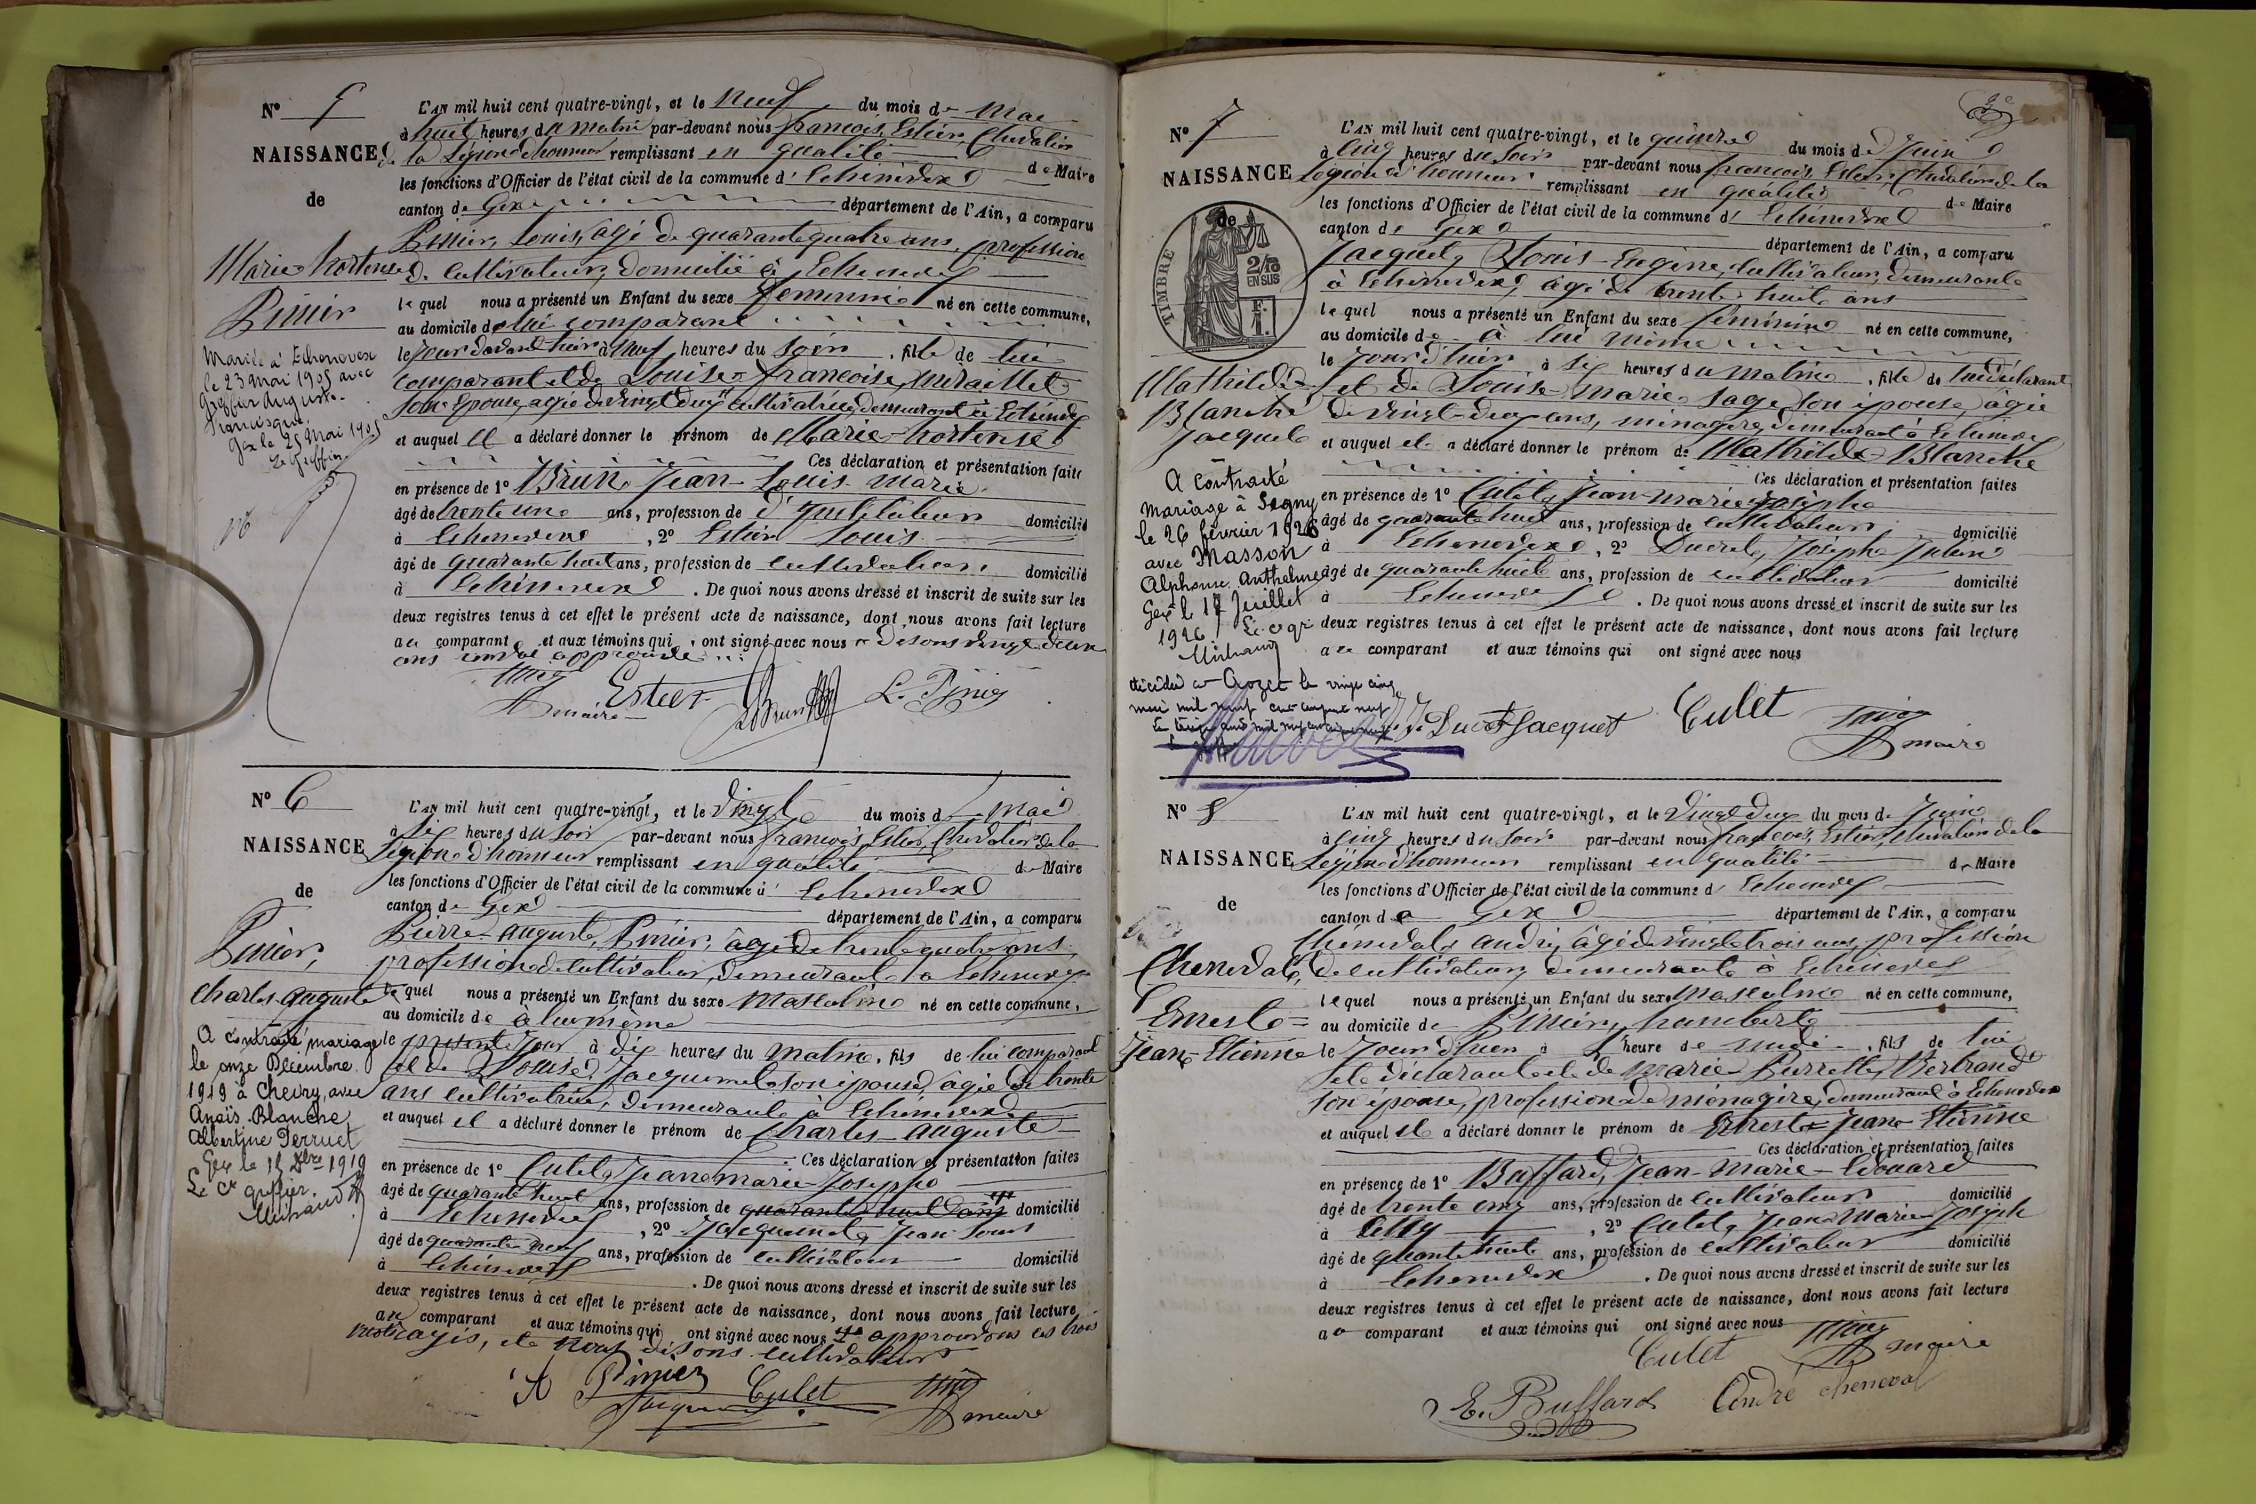 N° 5
NAISSANCE
de
Marie hortense
Pinier
Mariée à Echenevex
le 23 Mai 1905 avec
Greffier Auguste
Francisque.
Gex le 25 Mai 1905
Le Greffier
L'AN mil huit cent quatre-vingt, et le Neuf du mois de Mai
à huit heures du matin par-devant nous françois Estier, Chevalier
de la Légion d'honneur remplissant en qualité de Maire
les fonctions d'Officier de l'état civil de la commune d'Echenevex
canton de Gex département de l'Ain, a comparu
Pinier, Louis, âgé de quarante quatre ans, profession
de cultivateur, domicilié à Echenevex
lequel nous a présenté un Enfant du sexe féminin né en cette commune,
au domicile de lui comparant
le jour d'avant hier à neuf heures du soir, fille de lui
comparant et de Louise françoise
son épouse, agée de vingt deux cultivatrice, demeurant à Echenevex
et auquel il a déclaré donner le prénom de Marie hortense
Ces déclaration et présentation faite
en présence de 1° Brun Jean-Louis Marie
âgé de trente un ans, profession de domicilié
à Echenevex, 2° Estier Louis
âgé de quarante huit ans, profession de cultivateur domicilié
à Echenevex. De quoi nous avons dressé et inscrit de suite sur les
deux registres tenus à cet effet le présent acte de naissance, dont nous avons fait lecture
au comparant et aux témoins qui ont signé avec nous Disons vingt deux
ans approuvé
Estier L. Pinier
maire
N° 6
NAISSANCE
de
Pinier,
Charles auguste
A contracté mariage
le onze Décembre
1919 à Chevry, avec
Anaïs Blanche
Albertine Perruet
Gex le 15 Xbre 1919
Le Cis greffier
Michaud
L'AN mil huit cent quatre-vingt, et le Vingt du mois de Mai
à six heures du soir par-devant nous françois Estier, Chevalier de la
Légion d'honneur remplissant en qualité de Maire
les fonctions d'Officier de l'état civil de la commune d'Echenevex
canton de Gex département de l'Ain, a comparu
Pierre auguste, Pinier, âgé de trente quatre ans,
profession de cultivateur, demeurant à Echenevex
lequel nous a présenté un Enfant du sexe Masculin né en cette commune,
au domicile de à lui même
le présent jour à dix heures du matin, fils de lui comparant
et de Louise Jacquemet son épouse, âgée de trente
ans cultivatrice, demeurant à Echenevex
et auquel il a déclaré donner le prénom de Charles auguste
Ces déclaration et présentation faites
en présence de 1° Culet, Jean marie Joseph
âgé de quarante huit ans, profession de quarante huit ans domicilié
à Echenevex, 2° Jacquemet, Jean Louis
âgé de quarante neuf ans, profession de cultivateur domicilié
à Echenevex. De quoi nous avons dressé et inscrit de suite sur les
deux registres tenus à cet effet le présent acte de naissance, dont nous avons fait lecture
au comparant et aux témoins qui ont signé avec nous approuvons les trois
mots rayés, et nous disons cultivateur
A Pinier Culet
maire
N° 7
NAISSANCE
de
TIMBRE
2/10
EN SUS
Mathilde
Blanche
Jacquet
A contracté
mariage à Segny
le 26 février 1926
avec Masson
Alphonse Anthelme
Gex le 17 Juillet
1926
Le cis gr
Michaud
décédée à Crozet le vingt cinq
mai mil neuf cent cinquante neuf
L'AN mil huit cent quatre-vingt, et le quinze du mois de Juin
à Cinq heures du soir par-devant nous françois Estier, Chevalier de la
Légion d'honneur remplissant en qualité de Maire
les fonctions d'Officier de l'état civil de la commune d'Echenevex
canton de Gex département de l'Ain, a comparu
Jacquet, Louis-Eugène, Cultivateur, demeurant
à Echenevex, âgé de trente huit ans
lequel nous a présenté un Enfant du sexe féminin né en cette commune,
au domicile de à lui même
le jour d'hier à six heures du matin, fille de lui déclarant
et de Louise Marie Sage son épouse, âgée
de vingt-deux ans, ménagère, demeurant à Echenevex
et auquel il a déclaré donner le prénom de Mathilde Blanche
Ces déclaration et présentation faites
en présence de 1° Culet, Jean-Marie Josèphe
âgé de quarante huit ans, profession de cultivateur domicilié
à Echenevex, 2° Ducret, Joseph Julien
âgé de quarante huit ans, profession de cultivateur domicilié
à Echenevex. De quoi nous avons dressé et inscrit de suite sur les
deux registres tenus à cet effet le présent acte de naissance, dont nous avons fait lecture
au comparant et aux témoins qui ont signé avec nous
Ducret Jacquet Culet
maire
N° 8
NAISSANCE
de
Cheneval,
Ernest
Jean-Etienne
L'AN mil huit cent quatre-vingt, et le Vingt deux du mois de Juin
à cinq heures du soir par-devant nous françois, Estier, Chevalier de la
Légion d'honneur remplissant en qualité de Maire
les fonctions d'Officier de l'état civil de la commune d'Echenevex
canton de Gex département de l'Ain, a comparu
Cheneval, andré, âgé de vingt trois ans, profession
de cultivateur, demeurant à Echenevex
lequel nous a présenté un Enfant du sexe Masculin né en cette commune,
au domicile de Pinier, humbert
le Jour d'hier à heure de midi, fils de lui
le déclarant et de Marie Pierrette, Bertrand
son épouse, profession de ménagère, demeurant à Echenevex
et auquel il a déclaré donner le prénom de Ernest Jean Etienne
Ces déclaration et présentation faites
en présence de 1° Buffard, Jean-Marie-Edouard
âgé de trente cinq ans, profession de cultivateur domicilié
à Cessy, 2° Culet, Jean Marie Joseph
âgé de quarante huit ans, profession de cultivateur domicilié
à Echenevex. De quoi nous avons dressé et inscrit de suite sur les
deux registres tenus à cet effet le présent acte de naissance, dont nous avons fait lecture
au comparant et aux témoins qui ont signé avec nous
Culet maire
E. Buffard André cheneval